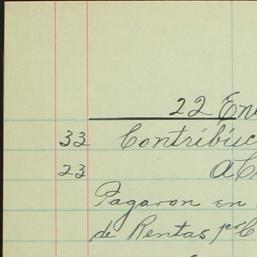 22 En
33 Contribuc
23 a C
Pagaron en
de Rentas por C